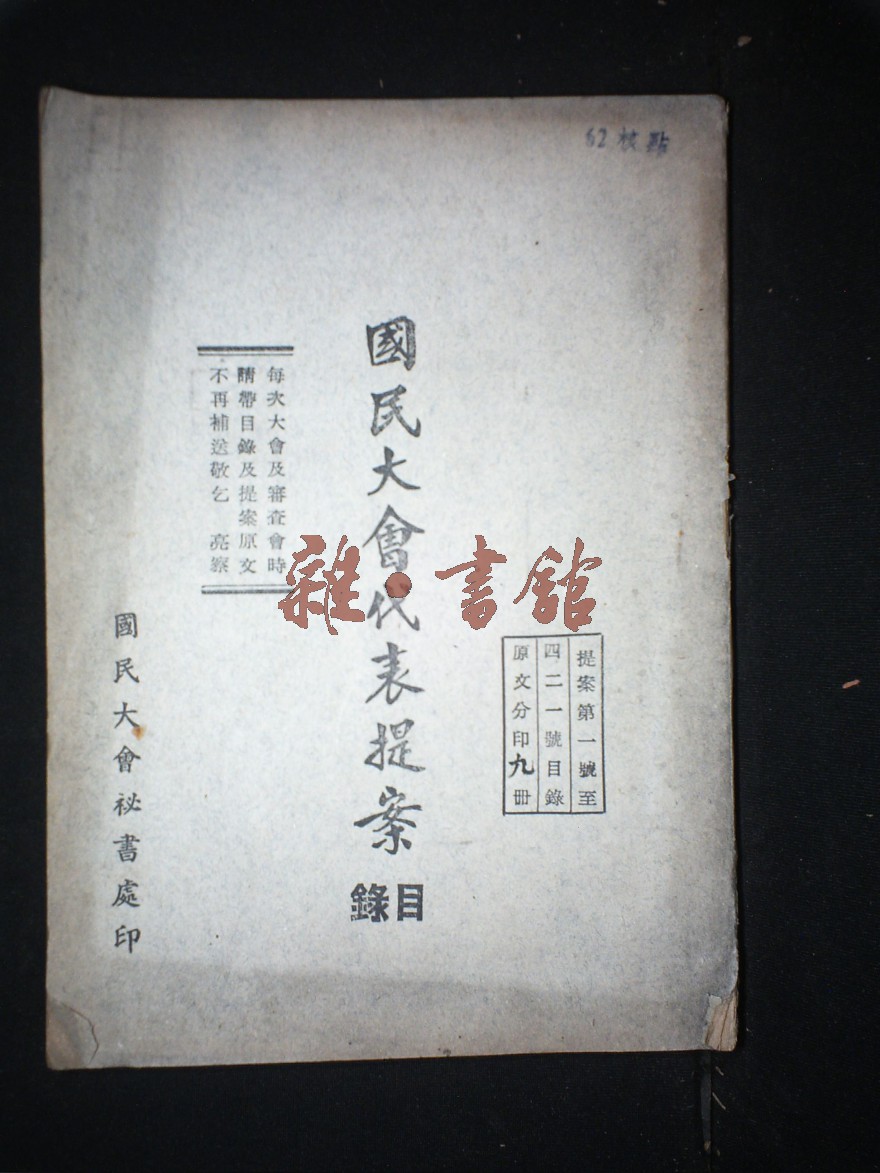 62 校點
提案第一號至
四二一號目錄
原文分印九冊
國民大會代表提案
目錄
每次大會及審查會時
請帶目錄及提案原文
不再補送敬乞 亮察
國民大會祕書處印
雜·書館